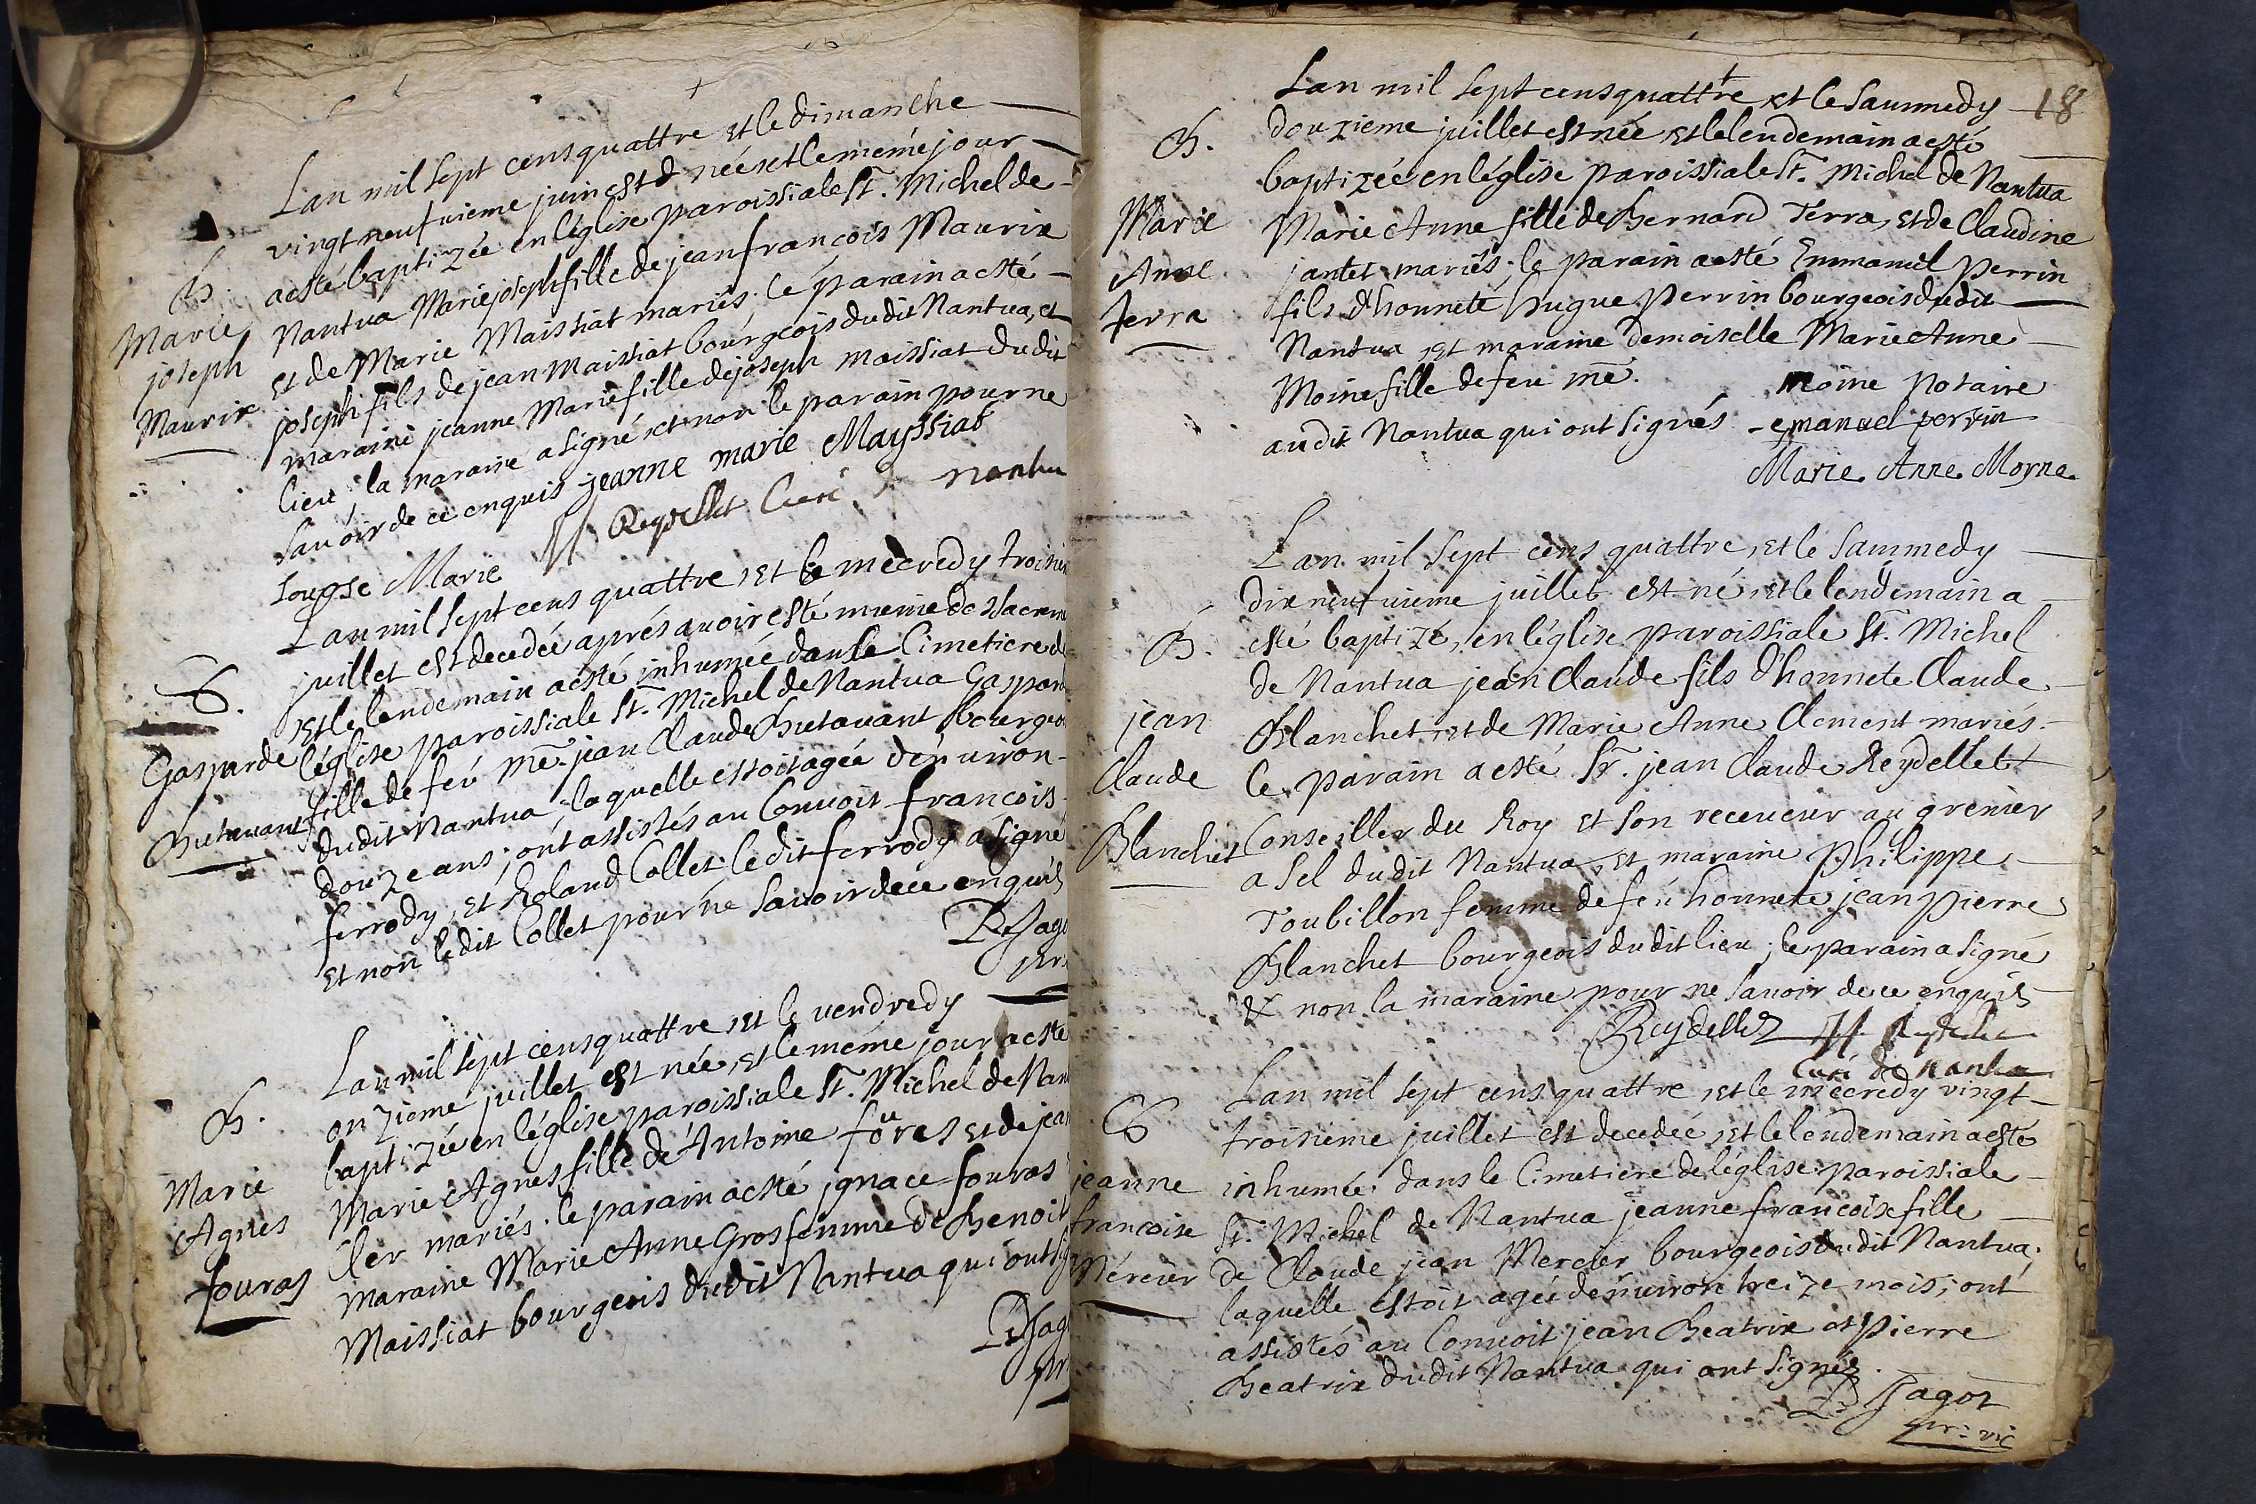 Lan mil sept cens quattre et le dimanche
vingt neufuieme juin est née et le meme jour
a esté baptizée en léglise paroissiale St. Michel de
Nantua Marie joseph fille de jean françois Maurix
et de Marie Maissiat mariés; le parain a esté
joseph fils de jean Maissiat bourgeois dudit Nantua, et
maraine jeanne Marie fille de joseph Maissiat dudit
lieu; la maraine a signé et non le parain pour ne
sauoir de ce enquis jeanne marie Mayssiat
Marie Reydellet Curé de nantua
B.
Marie
joseph
Maurix
Lan mil sept cens quattre, et le mecredy troisie
juillet est decedée aprés auoir esté munie des sacrem
et le lendemain a esté inhumée dans le Cimetiere de
léglise paroissiale St. Michel de Nantua Gaspar
fille de feu me. jean Claude Butauant bourgeoi
dudit Nantua; laquelle estoit agée d'enuiron
douze ans; ont assistés au Conuoit françois
ferrody, et Roland Collet; ledit ferrody a signé
et non ledit Collet pour ne sauoir de ce enquis
Gasparde
Butauant
Lan mil sept cens quattre, et le vendredy
onzieme juillet est née, et le meme jour a esté
baptizée en léglise paroissiale St. Michel de Nan
Marie Agnes fille de Antoine fouras et de jea
ler mariés; le parain a esté jgnace fouras
maraine Marie Anne Gros femme de Benoit
Maissiat bourgeois dudit Nantua qui ont
B.
Marie
Agnes
fouras
18
Lan mil sept cens quattre et le sammedy
douzieme juillet est née et le lendemain a esté
baptizée en léglise paroissiale St. Michel de Nantua
Marie Anne fille de Bernard Terra, et de Claudine
jantet mariés; le parain a esté Emmanuel Perrin
fils d'honnete hugue Perrin bourgeois dudit
Nantua et maraine demoiselle Marie Anne
Moine fille de feu me. moine notaire
audit Nantua qui ont signés emanuel perrin
Marie Anne Moyne
B.
Marie
Anne
Terra
Lan mil sept cens quattre, et le sammedy
dix neufuieme juillet est né, et le lendemain a
esté baptizé, en léglise paroissiale St. Michel
de Nantua jean Claude fils d'honnete Claude
Blanchet et de Marie Anne Clement mariés
le parain a esté Sr. jean Claude Reydellet
Conseiller du Roy et son receueur au grenier
a sel dudit Nantua, et maraine Philippe
Toubillon femme de feu honnete jean Pierre
Blanchet bourgeois dudit lieu; le parain a signé
& non la maraine pour ne sauoir de ce enquis
Reydellet Reydellet
Curé de nantua
B.
jean
Claude
Blanchet
Lan mil sept cens quattre, et le mecredy vingt
troisieme juillet est decedée, et le lendemain a esté
inhumée dans le Cimetiere de léglise paroissiale
St. Michel de Nantua jeanne françoise fille
de Claude jean Mercier bourgeois dudit Nantua;
laquelle estoit agée d'enuiron treize mois; ont
assistés au Conuoit jean Beatrix et Pierre
Beatrix dudit Nantua qui ont signés.
Jagot
pr: vic
jeanne
francoise
Mercier